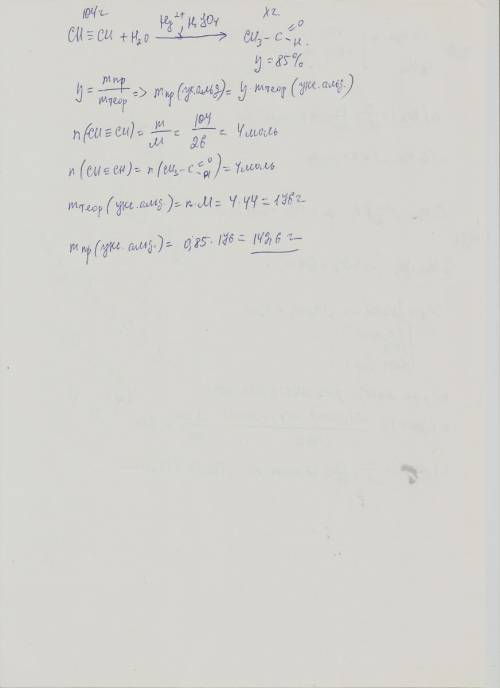 104 г x г.
CH≡CH + H₂O Hg²⁺, H₂SO₄ → CH₃ – C =O – H.
y = 85%
y = mпр / mтеор => mпр (ук.альд.) = y · mтеор (ук. альд.)
n(CH≡CH) = m/M = 104/26 = 4 моль
n (CH≡CH) = n (CH₃ – C =O – H) = 4 моль
mтеор (ук. альд.) = n · M = 4 · 44 = 176 г
mпр (ук. альд.) = 0,85 · 176 = 149,6 г